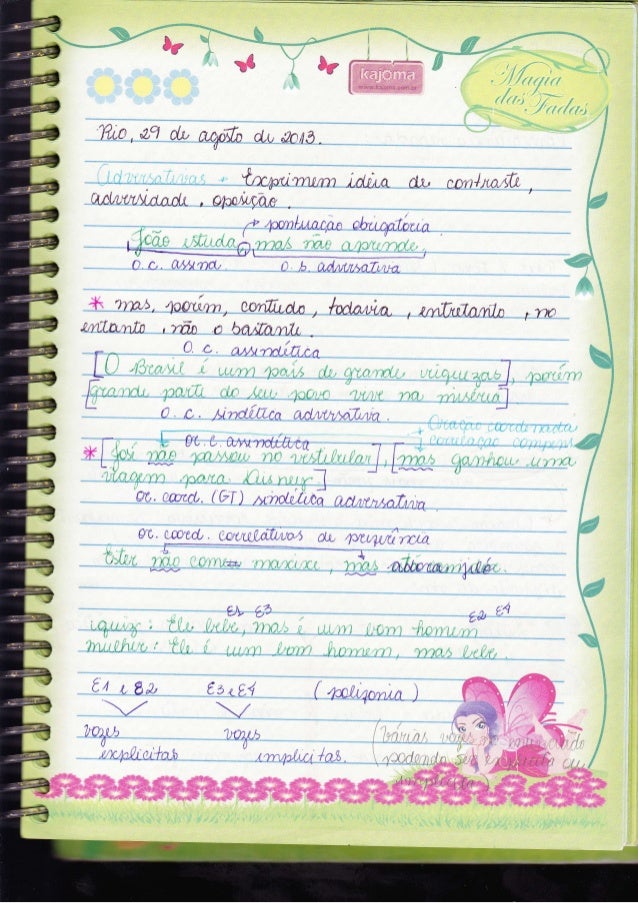 kajoma
www.kajoma.com.br
Magia
das Fadas
Rio, 29 de agosto de 2013.
Adversativas → Exprimem idéia de contraste,
adversidade, oposição.
→ pontuação obrigatória
João estuda, mas não aprende,
o.c. assind. o. s. adversativa
* mas, porém, contudo, todavia, entretanto, no
entanto, não o bastante.
O. c. assindética
[O Brasil é um país de grande riquezas], porém
[grande parte do seu povo vive na miséria]
o. c. sindética adversativa.
Oração coordenada
or. c. assindética correlação compens
* [José não passou no vestibular], [mas ganhou uma
viagem para Disney.]
or. coord. (GT) sindética adversativa
or. coord. correlativas de preferência
Ester não come maxixe, mas
E1 E3 E2 E4
: Ele bebe, mas é um bom homem
mulher: Ele é um bom homem, mas bebe.
E1 e E2 E3 e E4 (polifonia)
vozes vozes (várias vozes no enunciado
explicitas implicitas. podendo ser explicita ou
implicita)